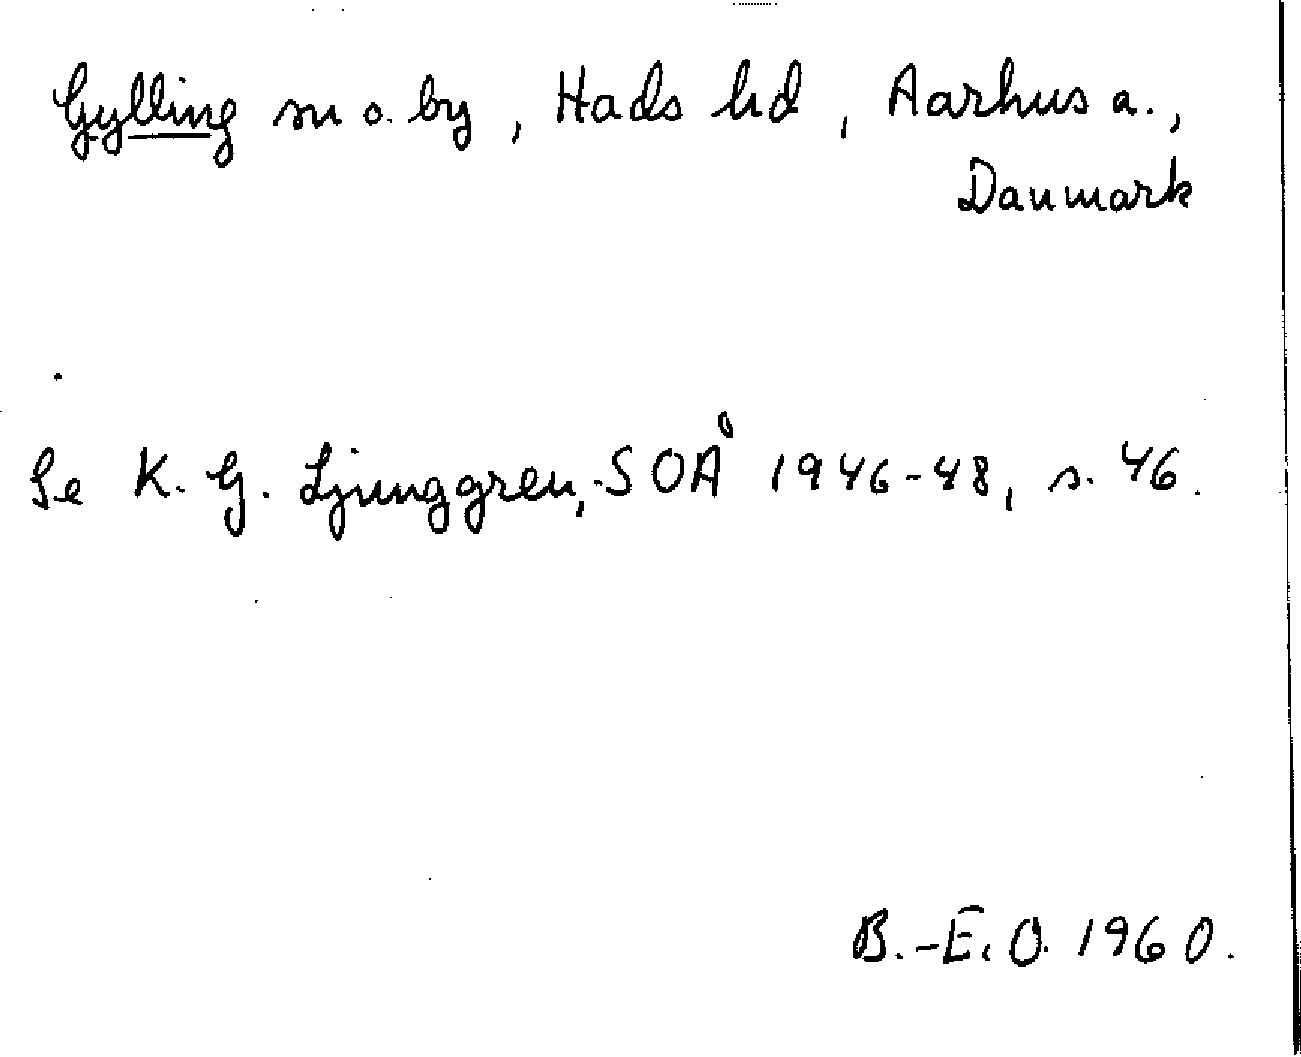 Gylling sn o. by, Hads hd, Aarhus a.,
Danmark
Se K. G. Ljunggren, SOÅ 1946-48, s. 46.
B.-E. O. 1960.